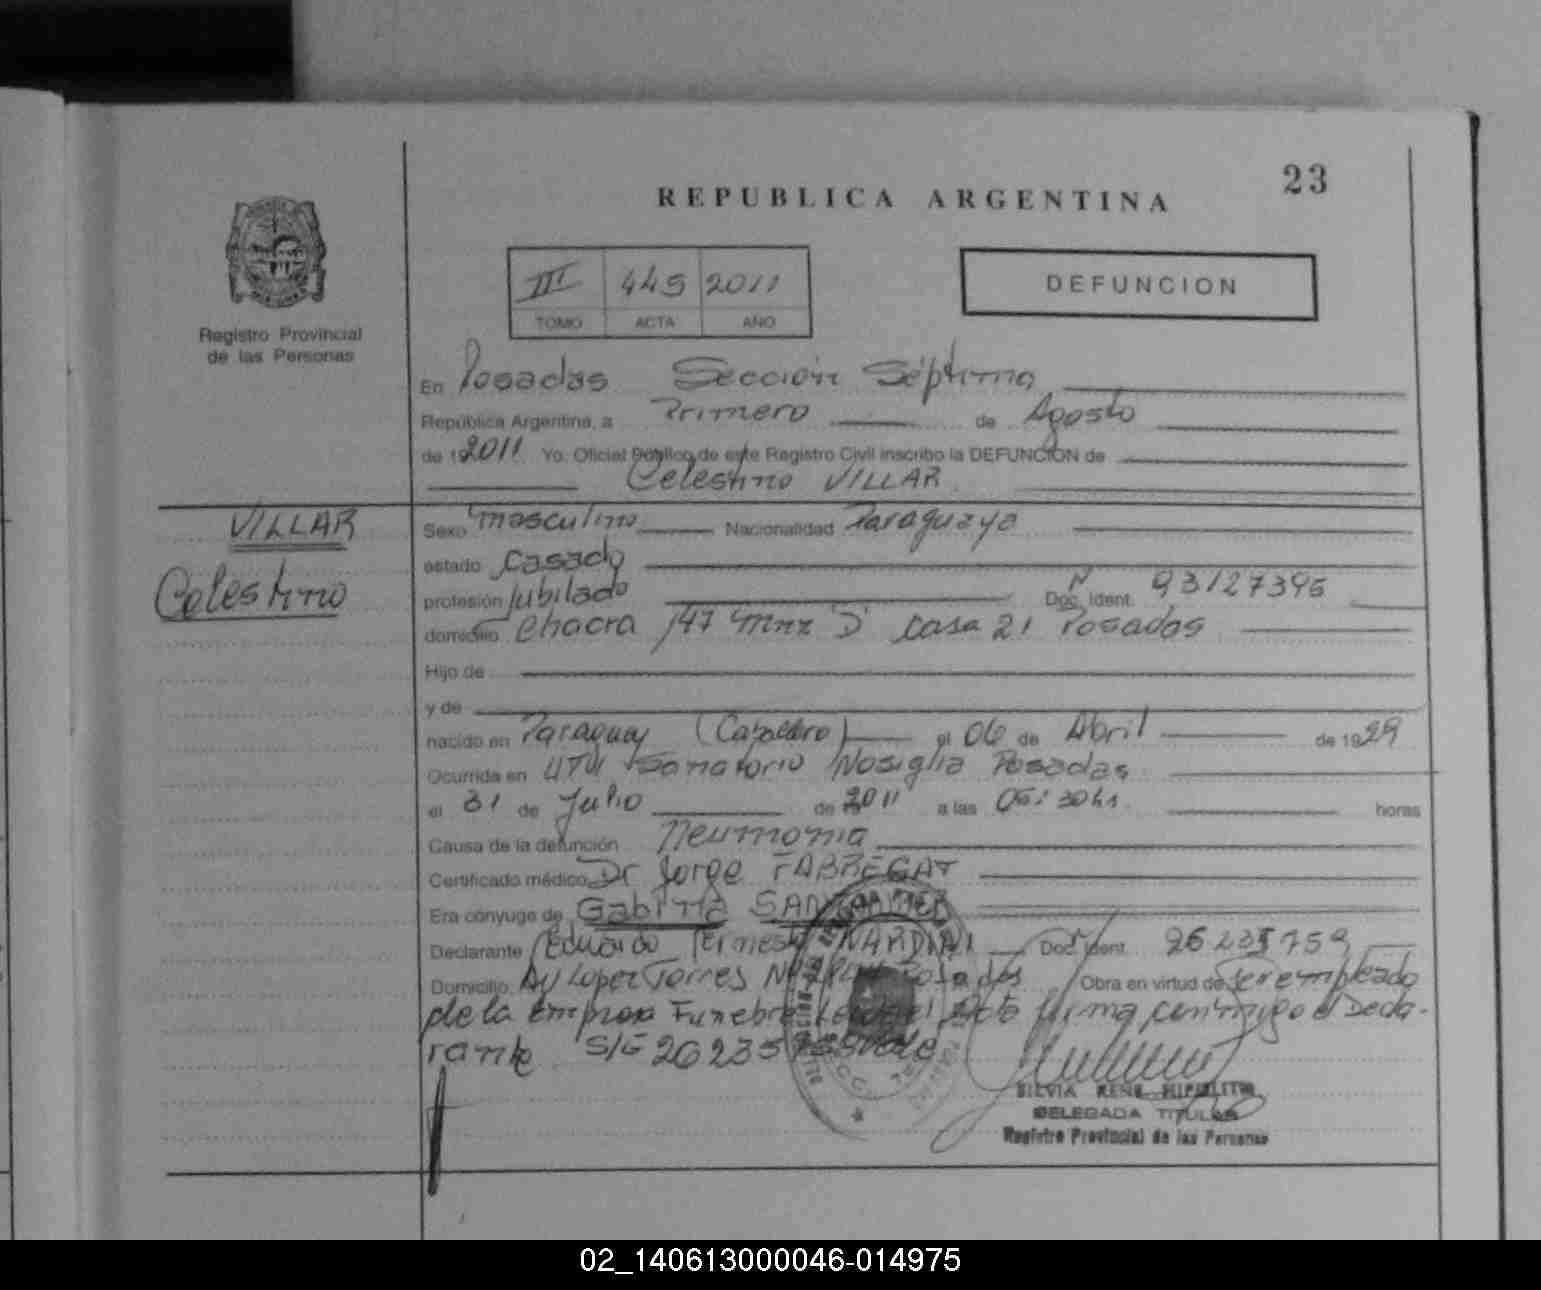 23
REPUBLICA ARGENTINA
III 445 2011
TOMO ACTA AÑO
DEFUNCION
Registro Provincial
de las Personas
En Posadas Sección Séptima
República Argentina, a Primero de Agosto
de 19 2011 Yo. Oficial Público de este Registro Civil inscribo la DEFUNCION de
Celestino VILLAR
VILLAR
Celestino
Sexo masculino Nacionalidad Paraguaya
estado Casado
profesión Jubilado Doc. Ident. Nº 93127395
domicilio Chacra 147 Mnz "D" casa 21 Posadas
Hijo de
y de
nacido en Paraguay (Caballero) el 06 de Abril de 1929
Ocurrida en UTI Sanatorio Nosiglia Posadas
el 31 de Julio de 2011 a las horas
Causa de la defunción Neumonia
Certificado médico Dr Jorge FABREGAT
Era cónyuge de
Declarante Eduardo Ernesto NARDINI Doc. Ident. 759
Domicilio Av Lopez Torres Posadas Obra en virtud de ser empleado
de la Empresa Funebre firma conmigo el Decla-
rante S/E
SILVIA RENE HIPOLITO
DELEGADA TITULAR
Registro Provincial de las Personas
02_140613000046-014975